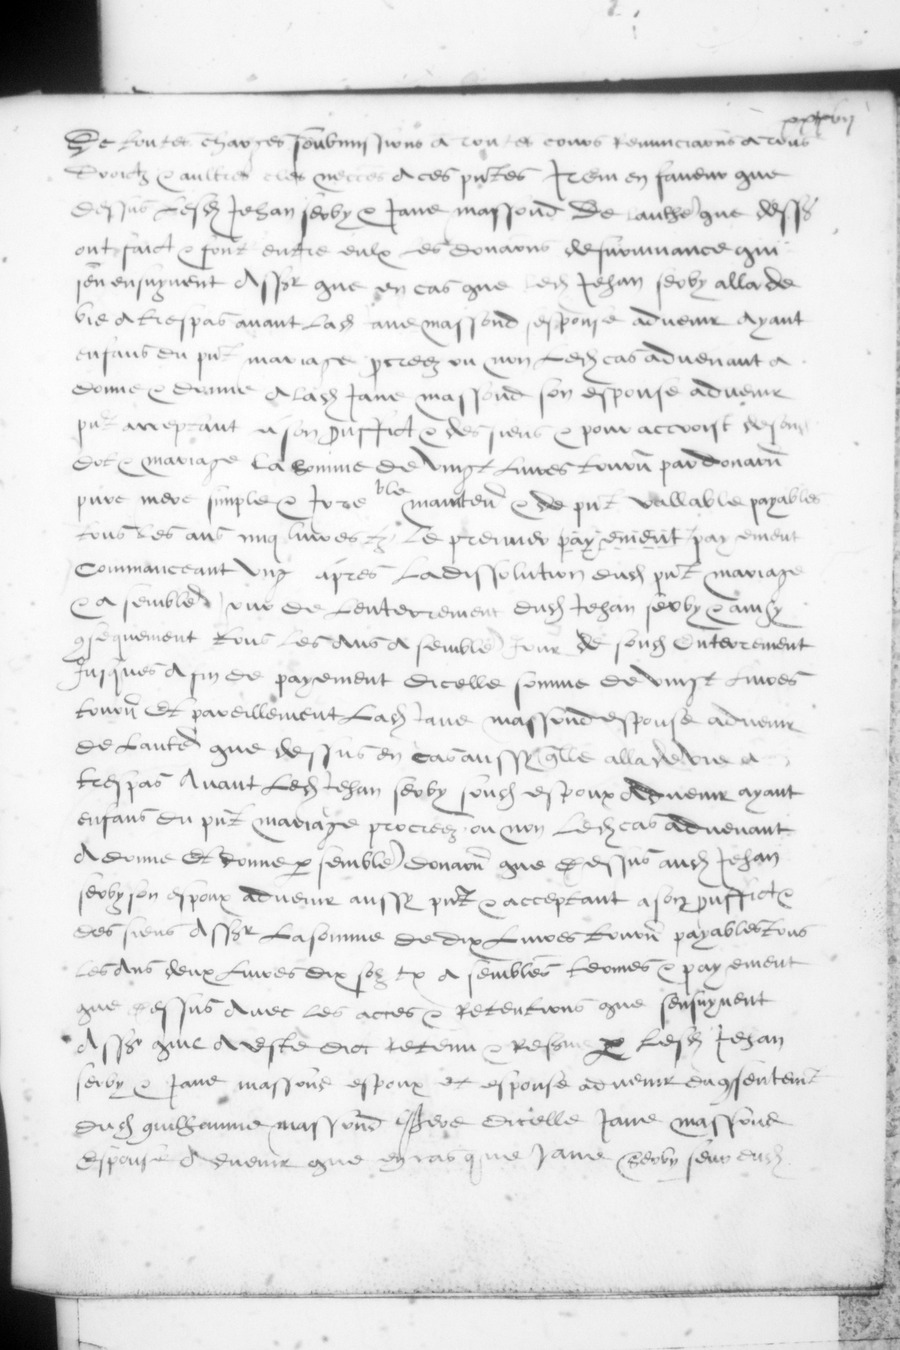 xxxvii
De toutes charges soubmissions a toutes cours renunciaons a tous
droictz & aultres cl'es necc'es a ces pntes Item en faveur que
dessus Lesd Jehan serby & Jane massond De lauthe que dess'
ont faict & font entre eulx les donaons de survivance qui
sen ensuyvent Ass'r que en cas que led Jehan serby alla de
vie a trespas avant Lad Jane massond esponse advenir ayant
enfans du pnt mariage procreez ou non Led cas advenant a
donne & donne a lad Jane massond son espouse advenir
pnt acceptant a son prouffict & des siens & pour accroist de son
dot & mariage La somme de vingt livres tourn par donaon
pure mere simple & Irre ble mainten & de pnt vallable payables
tous les ans cinq livres tz Le premier payement payement
Commanceant Ung apres La dissolution dud pnt mariage
& a semble Jour de Lenterrement dud Jehan serby & ainsy
consequement tous les ans a semble Jour de sond Enterrement
Jusques a fin de payement dicelle somme de vingt livres
tourn Et pareillement Lad Jane massond espouse advenir
de Laute que dessus en cas aussy qlle alla de vie a
trespas Avant Led Jehan serby sond espoux Advenir ayant
enfans du pnt mariage procreez ou non Led cas advenant
A donne Et donne p semble donaon que dessus aud Jehan
serby son espoux advenir aussy pnt & acceptant a son prouffict &
des siens Ass'r La somme de dix Livres tourn payables tous
Les Ans deux Livres dix solz tz a sembles termes & payement
que dessus Avec les actes & Retentions que sensuyvent
Ass'r quil A este dict retenu & Reserve p Lesd Jehan
serby & Jane massond espoux et espouse advenir du consentement
dud guilhaume massond pere dicelle Jane massond
Espouse Advenir que en cas que Jane serby seur dud